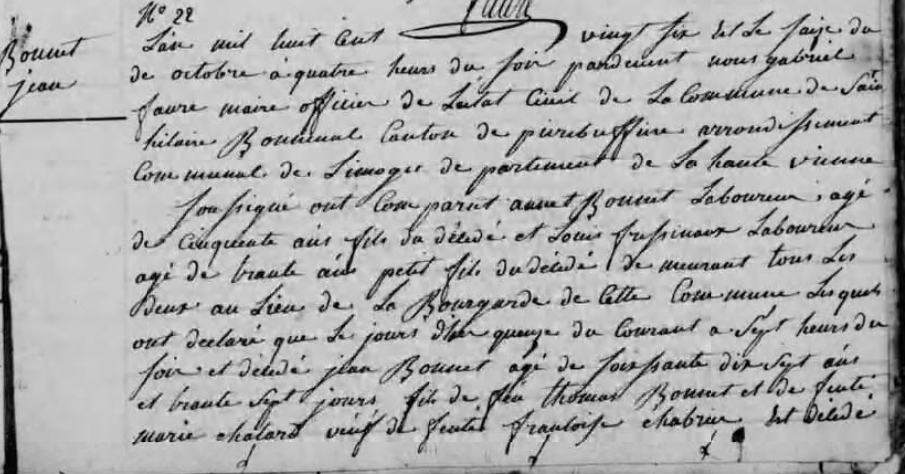 N° 22
Bonnet
jean
L'an mil huit Cent vingt six et Le saize du
de octobre à quatre heurs du soir pardevent nous gabriel
faure maire officier de Letat Civil de La Commune de Saint
hilaire Bonneval Canton de pierebuffiere arrondissement
Communal de Limoges de partement de La haute vienne
soussigné ont Comparut annet Bonnet Laboureur, agé
de Cinquente ans fils du décédé et Louis fressinaux Laboureur
agé de trante ans petit fils du décédé de meurant tous Les
deux au Lieu de La Bourgarde de Cette Commune Lesquels
ont declaré que Le jours d'hier quenze du Courant a Sept heurs du
soir et décédé jean Bonnet agé de soissante dix Sept ans
et trante Sept jours fils de feu thomas Bonnet et de feuté
marie chatard veuf de feuté francoise chabrier Est décédé